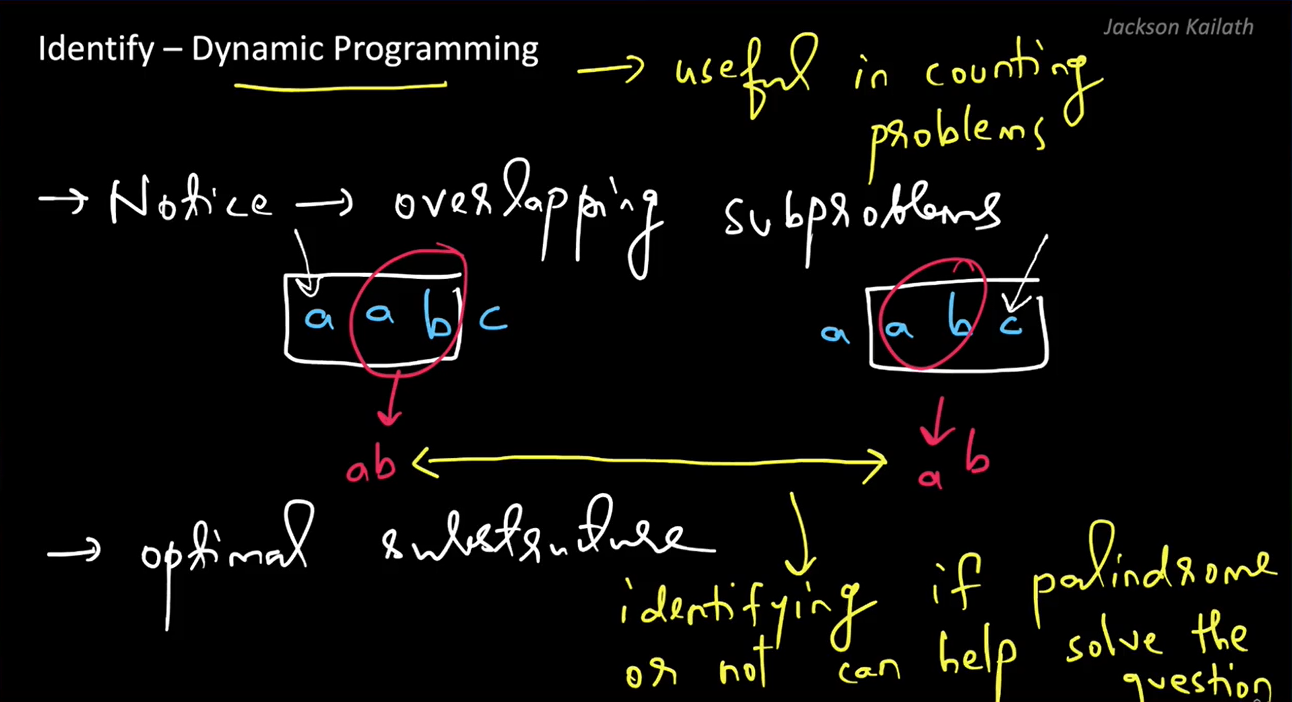 Jackson Kailath
Identify – Dynamic Programming
→ useful in counting
problems
→ Notice → overlapping subproblems
a a b c
a a b c
ab
a b
→ optimal substruture
identifying if palindrome
or not can help solve the
question